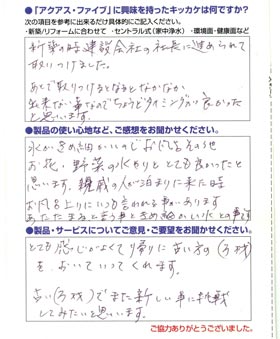 ●「アクアス・ファイブ」に興味を持ったキッカケは何ですか?
次の項目を参考に出来るだけ具体的にご記入ください。
・新築/リフォームに合わせて ・セントラル式(家中浄水) ・環境面・健康面など
新築の時建設会社の社長に進められて
取りつけました。
あとで取りつけるとなるとなかなか
出来ない事なのでちょうどタイミングが良かった
と思います。
●製品の使い心地など、ご感想をお聞かせください。
水がきめ細かいのでお
お花、野菜の水やりととても良かったと
思います。親戚の人が泊まりに来た時
お風呂上りにいつも言われる事があります
あたたまると言う事ときめ細かい水との事です
●製品・サービスについてご意見・ご要望をお聞かせください。
とても感じがよくて帰りに古い方の(ろ材)
を、おいていってくれます。
古い(ろ材)でまた新しい事に挑戦
してみたいと思います。
ご協力ありがとうございました。